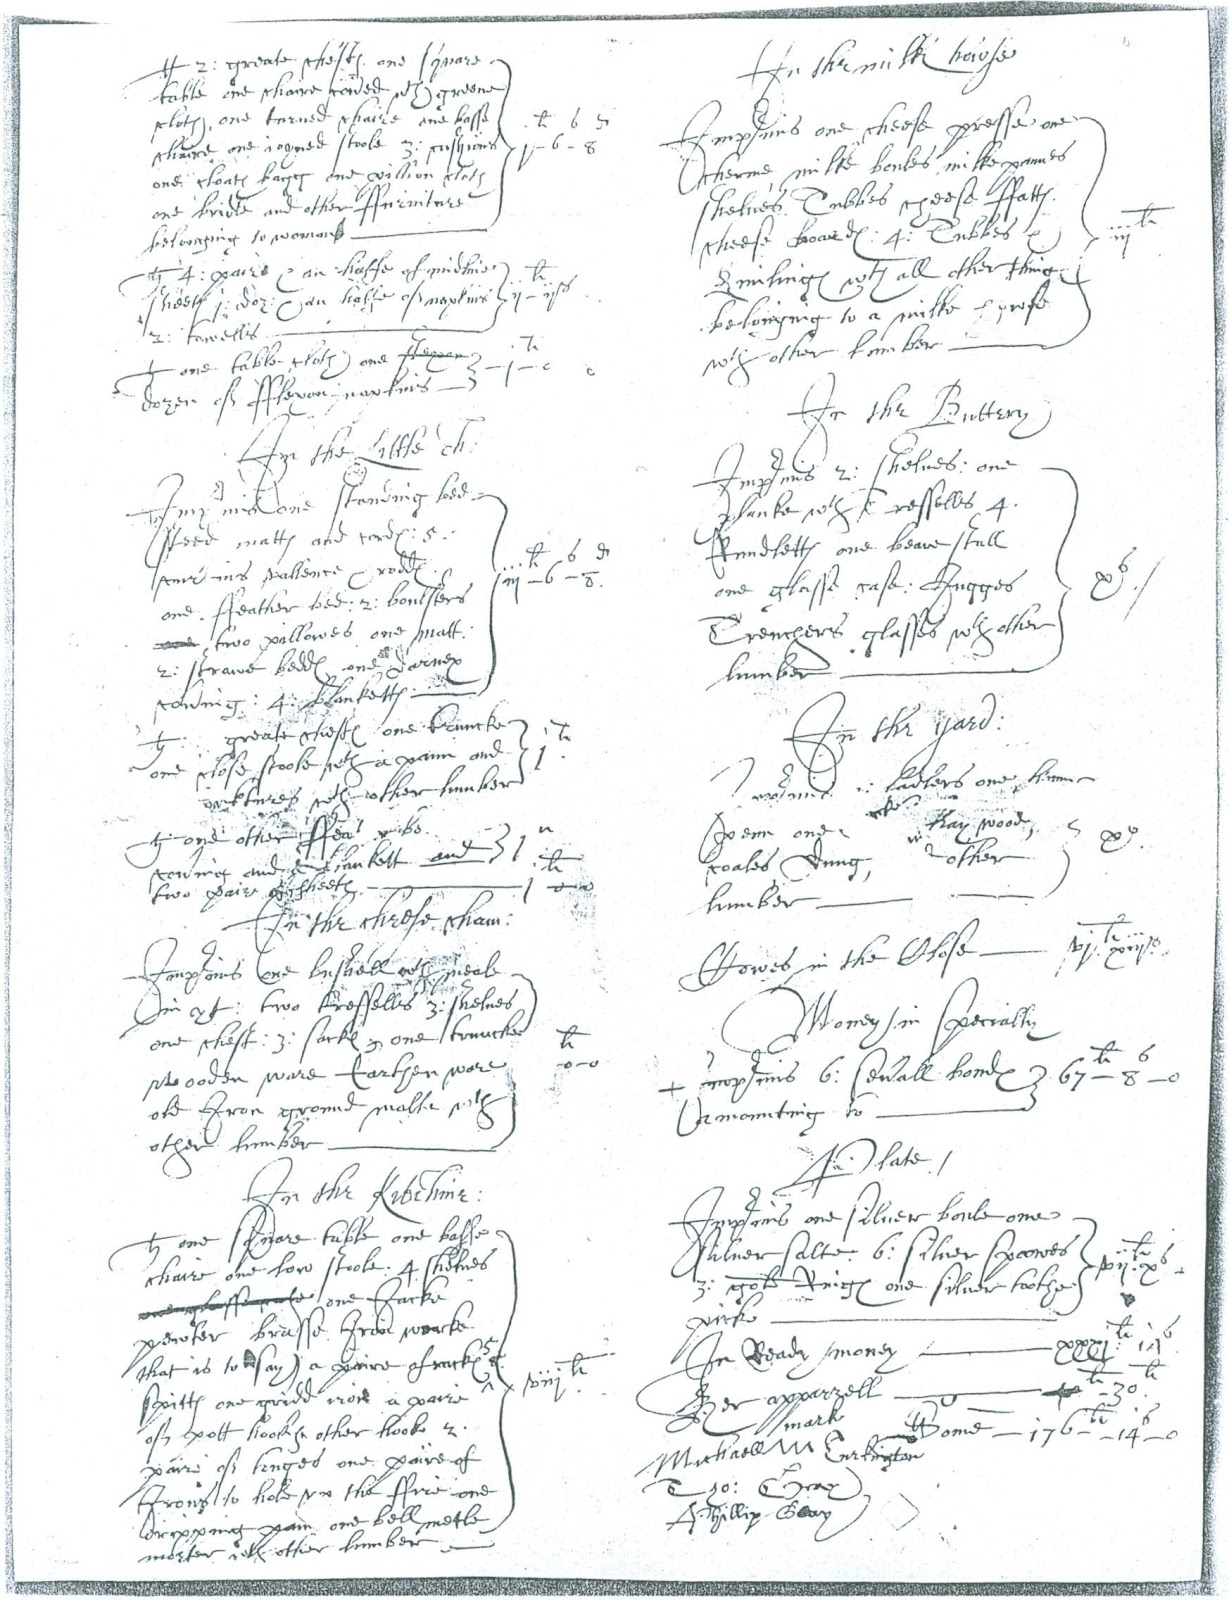 It 2: greate chestes one square
table one chaire covred wth greene
cloth, one turned chaire one basse
chaire one ioyned stoole 3: cushions
one cloath bagg one pillion cloth
one bridle and other ffurniture
belonging to womans
li s d
1-6-8
It 4: paire & an halfe of midling
sheets 1: doz: & an halfe of napkins
2: towells
li
ij - ijs
It one table cloth one
dozen of fflexon napkins
li
-1-0 0
In the Little Ch:
Imprimis one standing bed
steed matt and cord: 5
curtins vallence rodds
one ffeather bed: 2: boulsters
two pillowes one matt:
2: strawe bedds one darnex
covring: 4: blanketts
li s d
iij-6-8
It greate chests one truncke
one close stoole wth a pann and
pictures wth other lumber
li
1
It one other ffeather
covring and blankett and
two paire of sheets
li
1 -0-0
In the cheese cham:
Imprimis one bushell wth meale
in yt: two tressells 3: shelves
one chest: 3: sacks one truncke
wooden ware Earthen ware
old Iron ground malte wth
other lumber
li
-0-0
In the Kitchine:
It one square table one basse
chaire one low stoole: 4 shelves
one Jacke
pewter brasse Iron worke
that is to say) a paire of racks 5
spitts one gridd iron a paire
of pott hooks other hooks 2
paire of tonges one paire of
Irons to hold up the ffire one
dripping pann one bell metle
morter wth other lumber
li
viij
In the milke howse
Imprimis one cheese presse one
cherme milke boules milke pannes
shelves Tubbes cheese ffatts
cheese boards: 4: Tubbes &
Kimlings wth all other things
belonging to a milke howse
wth other lumber
li
iij
In the Buttery
Imprimis 2: shelves: one
planke wth Tressells 4
Rundletts one beare stall
one glasse case: Jugges
Trenchers glasses wth other
lumber
xs
In the yard:
Imprimis ladders one
one wood,
coales dung, other
lumber
xs.
Cowes in the Close
li
vj xiijs
Money in Specialty
+ Imprimis 6: severall bonds
amounting to
li s
67-8-0
Plate
Imprimis one silver boule one
silver salte: 6: silver spoones
3: gold Rings one silver toothe
picke
li s
vij: x
In Ready money xxxj li
Her apparrell 30 li
Some 176 li -14 s -0
mark
Michaell M Turkington
Tho: Gray
Phillip Gray